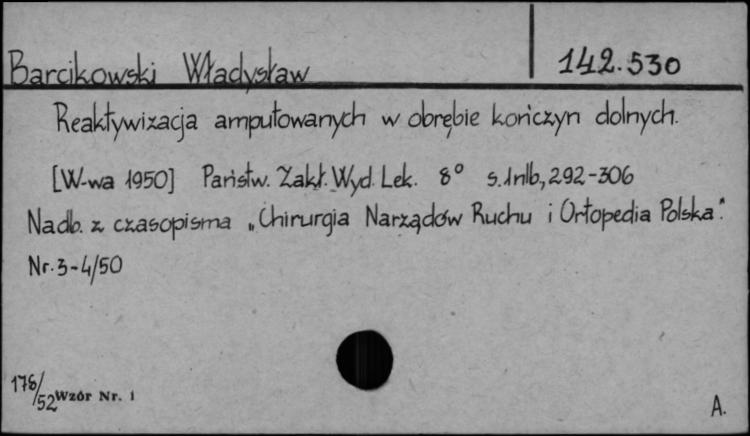 Barcikowski Władysław 142.530
Reaktywizacja amputowanych w obrębie kończyn dolnych.
[W-wa 1950] Państw. Zakł. Wyd. Lek. 8° s.1nlb., 292-306
Nadb. z czasopisma „Chirurgia Narządów Ruchu i Ortopedia Polska".
Nr. 3-4/50
178/52 Wzór Nr. 1
A.